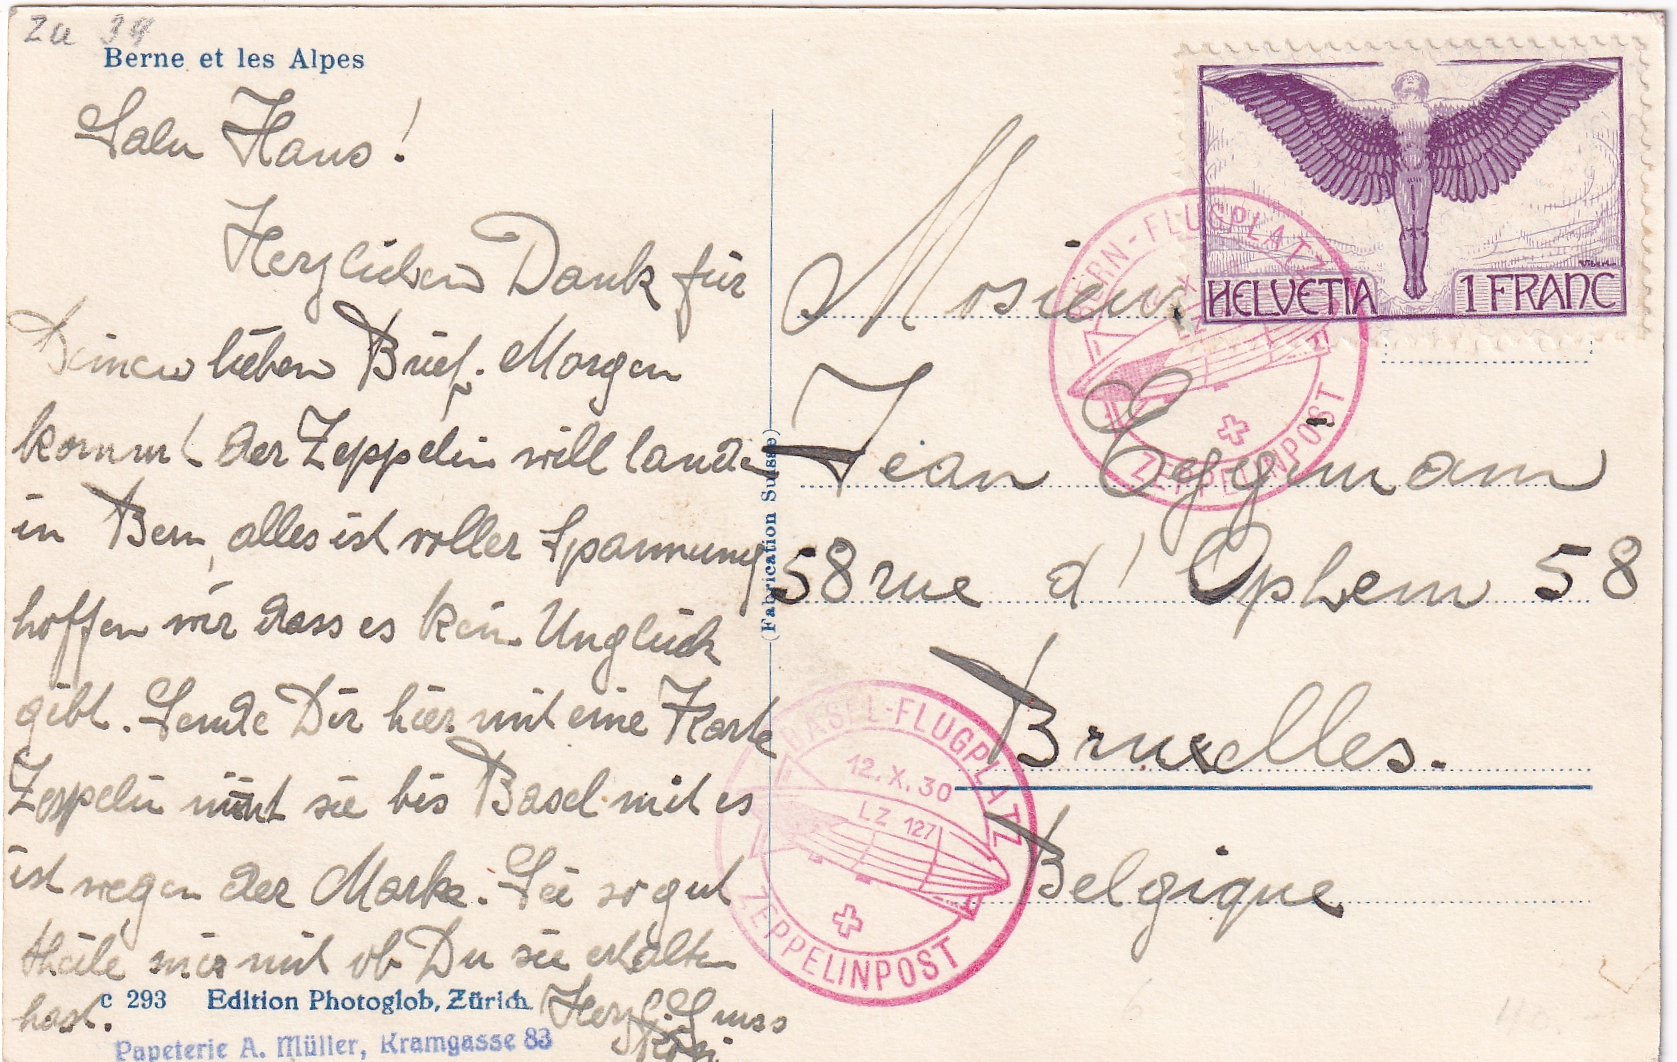 Za 34
Berne et les Alpes
Salu Hans!
Herzlichen Dank für
Deinen lieben Brief. Morgen
kommt der Zeppelin will landen
in Bern, alles ist voller Spannung
hoffen wir dass es kein Unglück
gibt. Sende Dir hier mit eine Karte
Zeppelin nimt sie bis Basel mit es
ist wegen der Marke. Sei so gut
theile mir mit ob Du sie erhalten
hast. Herzl. Gruss
c 293 Edition Photoglob, Zürich
Papeterie A. Müller, Kramgasse 83
(Fabrication Suisse)
HELVETIA 1 FRANC
BERN-FLUGPLATZ
ZEPPELINPOST
Mosieur
Jean Eggimann
58 rue d'Ophem 58
Bruxelles.
Belgique
BASEL-FLUGPLATZ
12.X.30
LZ 127
ZEPPELINPOST